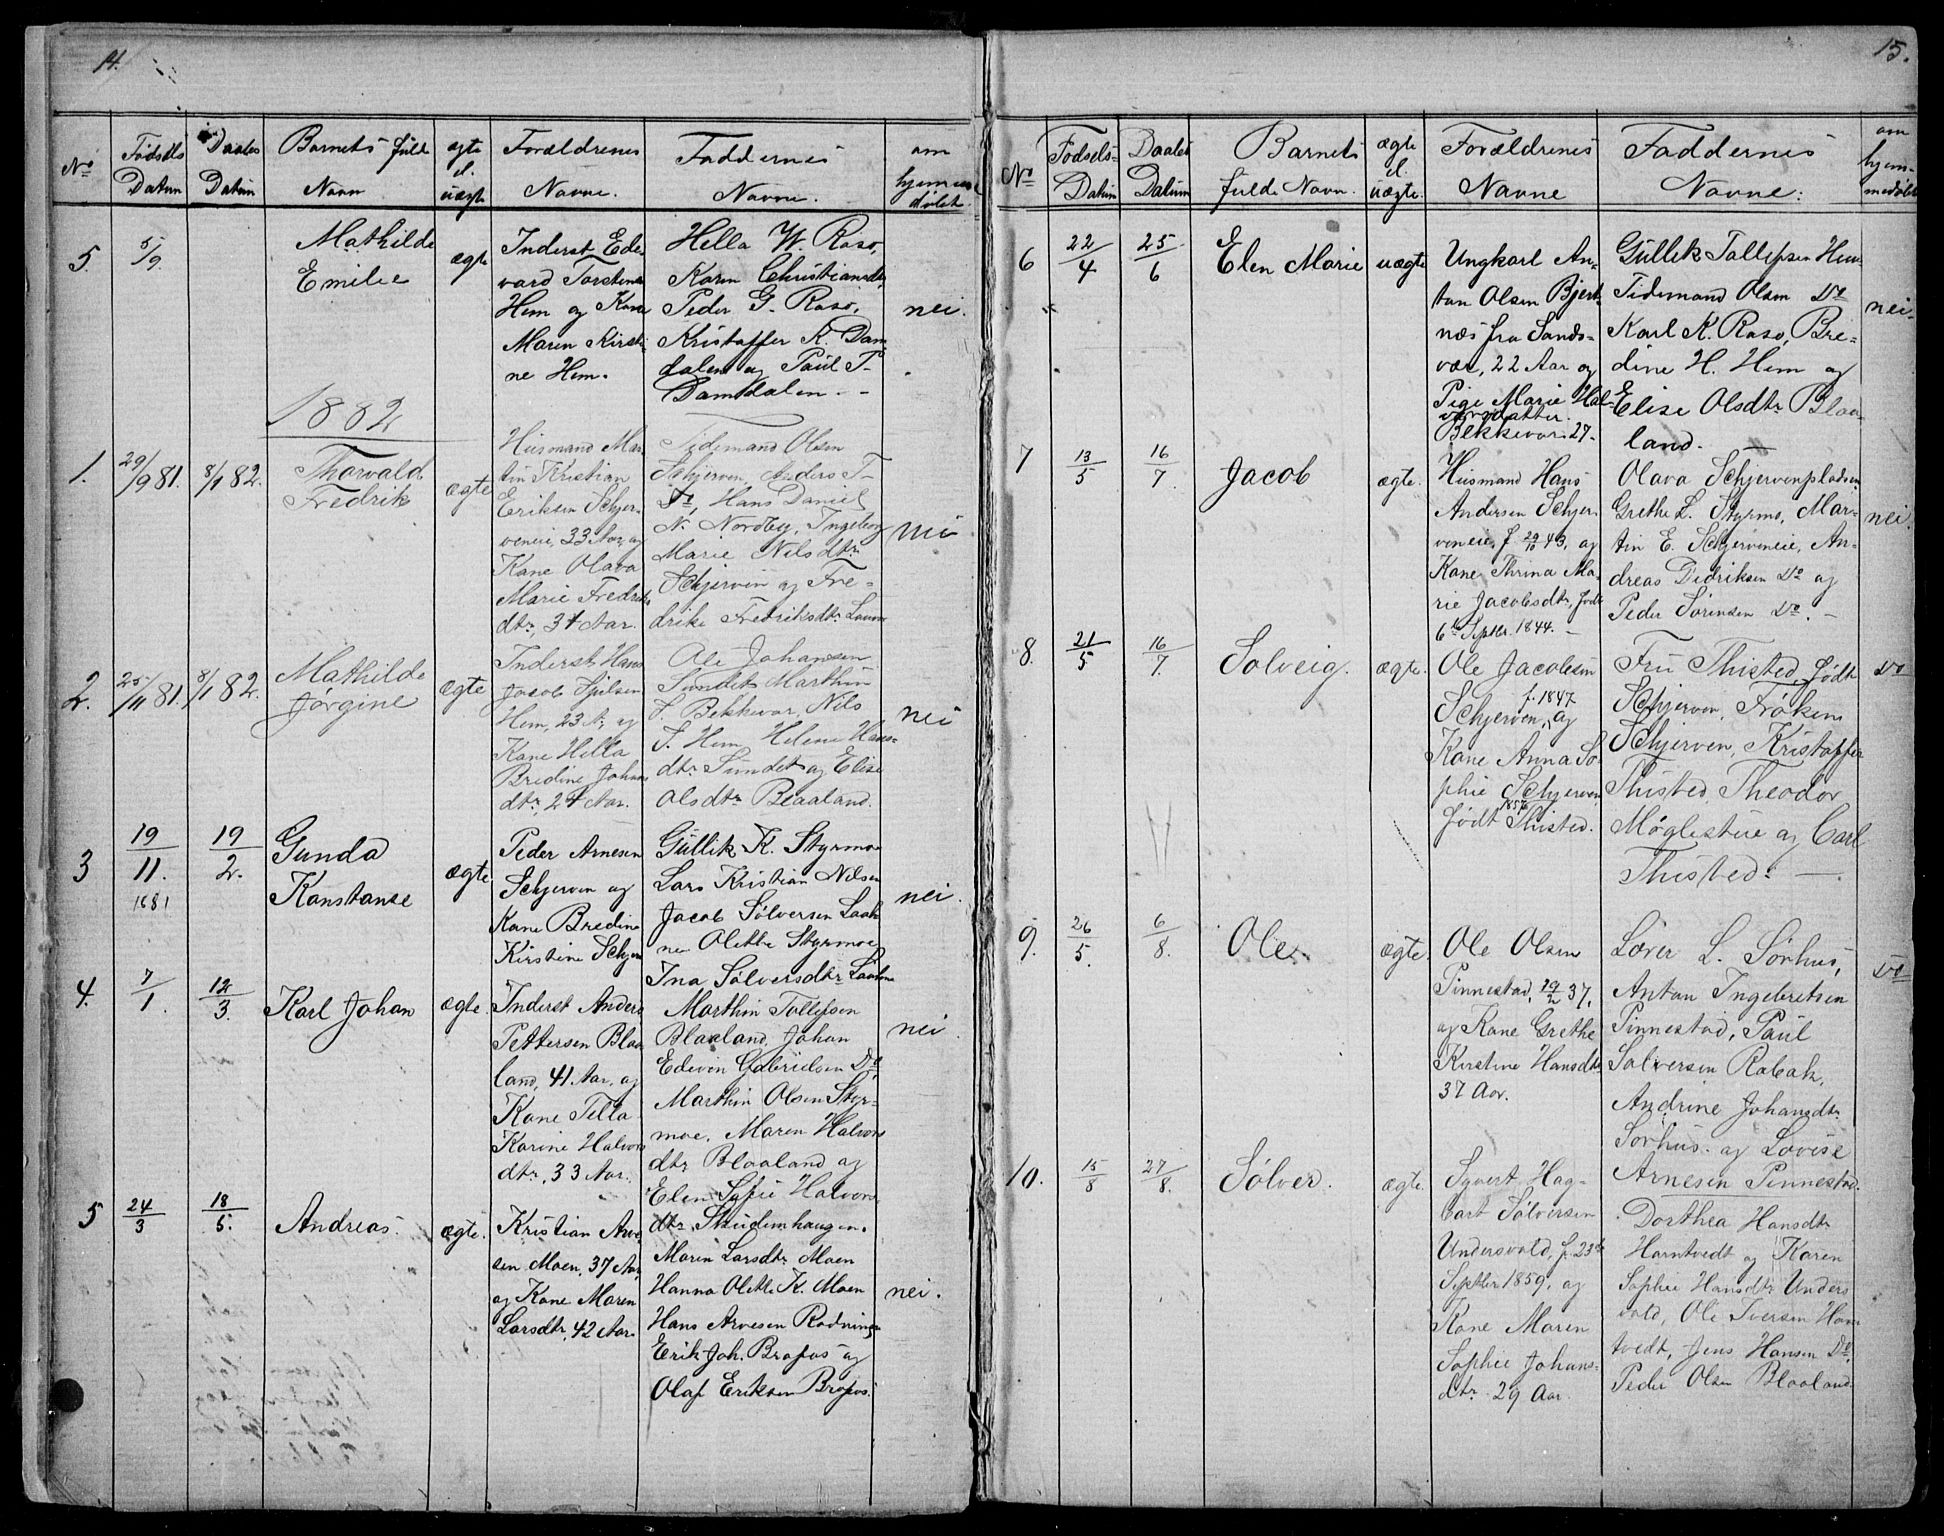 14.
No
Fødsels Datum
Daabs Datum
Barnets fulde Navn
ægte el. uægte
Forældrenes Navne.
Faddernes Navne.
om hjemmedøbt.
5. 5/9. Mathilde Emilie ægte
Inderst Ed-
vard Torstens
Hem og Kone
Maren Kirsti-
ne Hem.
Hella W. Raso,
Karen Christiansdt,
Peder G. Raso,
Kristoffer K. Dam-
dalen og Paul T-
Damdalen. -
nei.
1882
1. 29/9 81. 8/1 82. Thorvald Fredrik ægte
Husmand Mar-
tin Kristian
Eriksen Schjer-
veneie, 33 Aar, og
Kone Olava
Marie Fredriks
dtr, 34 Aar.
Tidemand Olsen
Schjerven, Anders T-
Do, Hans Daniel
N. Nordby, Ingeborg
Marie Nilsdtr
Schjerven og Fre-
drike Fredriksdtr
nei
2. 25/11 81. 8/1 82. Mathilde Jørgine ægte
Inderst Hans
Jacob
Hem, 23 A, og
Kone Hella
Bredine Johans
dtr, 24 Aar.
Ole Johansen
Sundet, Marthin
J. Bekkevar, Nils
J. Hem, Helene Hans-
dtr Sundet og Elise
Olsdtr Blaaland.
nei
3 19/11. 1881 19/2. Gunda Konstanse ægte
Peder Arnesen
Schjerven og
Kone Bredine
Kirstine Schjer
Gullik K. Styrmoe
Lars Kristian Nilsen
Jacob Sølversen Laah
ne Olette Styrmoe
Ina Sølversdtr
nei.
4. 7/1 12/3. Karl Johan ægte.
Inderst Anders
Pettersen Blaa
land, 41 Aar, og
Kone Tella
Karine Halvors
dtr, 33 Aar.
Marthin Tollefsen
Blaaland, Johan
Edevon Gabrielsen Do,
Marthin Olsen Styr-
moe, Maren Halvors
dtr Blaaland og
Elen Sofie Halvors
dtr Skudenhaugen.
nei
5 24/3 18/5. Andreas. ægte.
Kristian Arve-
sen Moen, 37 Aar,
og Kone Maren
Larsdtr, 42 Aar
Maren Larsdtr Moen
Hanna Olette K. Moen
Hans Arvesen Rodninge
Erik Joh. Brofos og
Olaf Eriksen Brofos.
nei.
15.
No
Fødsels- Datum
Daabs Datum
Barnets fulde Navn.
ægte el. uægte.
Forældrenes Navne
Faddernes Navne:
om hjem- medøbt
6 22/4 25/6 Elen Marie uægte
Ungkarl An-
ton Olsen Bjert-
næs fra Sands-
vær, 22 Aar og
Pige Marie Hal-
vorsdatter.
Bekkevar. 27-
Gullik Tollefsen Hem
Tidemand Olsen Do
Karl K. Raso, Bre-
dine H. Hem og
Elise Olsdtr Blaa-
land. -
nei.
7 13/5 16/7. Jacob ægte.
Husmand Hans
Andersen Schjer-
veneie, f. 29/10 43, og
Kone Thrina Ma-
rie Jacobsdtr, født
6te Septbr. 1844. -
Olava Schjervenpladsen
Grethe L. Styrmo, Mar-
tin E. Schjerveneie, An-
dreas Didriksen Do og
Peder Sørensen Do. -
nei.
8. 21/5 16/7 Solveig. ægte.
Ole Jacobsen
f. 1847
Schjerven, og
Kone Anna So-
phie Schjerven
født 1856 Thisted.
Fru Thisted, født
Schjerven, Frøken
Schjerven, Kristoffer
Thisted, Theodor
Møglestue og Carl
Thisted. -
Do
9. 26/5. 6/8. Ole. ægte.
Ole Olsen
Pinnestad, 19/2 37,
og Kone Grethe
Kirstine Hansdtr
37 Aar.
Lover L. Sørhus,
Anton Ingebretsen
Pinnestad, Paul
Solversen Rabak,
Andrine Johansdtr
Sørhus. og Lovise
Arnesen Pinnestad.
Do
10. 15/8 27/8. Sølver. ægte.
Syvert Hag-
bart Sølversen
Undersvold, f. 23de
Septbr 1859, og
Kone Maren
Sophie Johans-
dtr. 29 Aar.
Dorthea Hansdtr
Horntvedt og Karen
Sophie Hansdtr Unders
vold, Ole Iversen Horn
tvedt, Jens Hansen Do,
Peder Olsen Blaaland